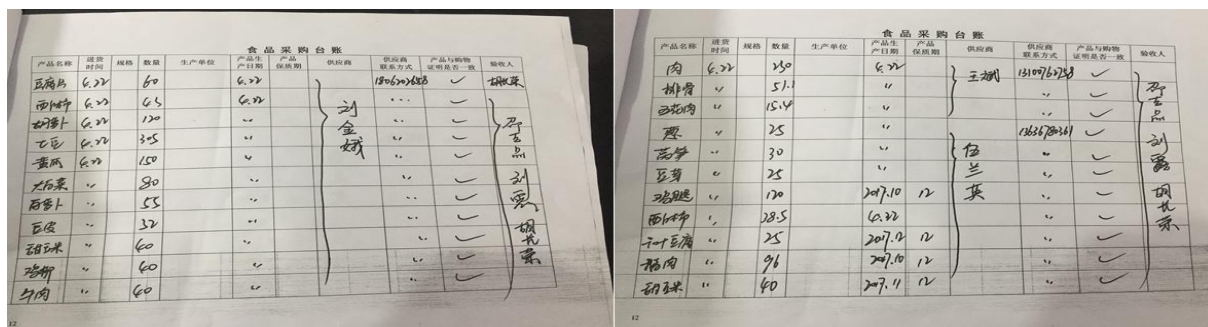 食品采购台账
产品名称 进货时间 规格 数量 生产单位 产品生产日期 产品保质期 供应商 供应商联系方式 产品与购物证明是否一致 验收人
豆腐片 4.22 60 4.22 刘金娥 ✓
西红柿 4.22 45 4.22 〃 ✓
胡萝卜 4.22 120 〃 〃 ✓
土豆 4.22 305 〃 〃 ✓
黄瓜 4.22 150 〃 〃 ✓
大白菜 〃 80 〃 〃 ✓
白萝卜 〃 55 〃 〃 ✓
豆皮 〃 32 〃 〃 ✓
甜玉米 〃 40 〃 〃 ✓
鸡柳 〃 40 〃 〃 ✓
牛肉 〃 40 〃 〃 ✓
刘露
胡长荣
12
食品采购台账
产品名称 进货时间 规格 数量 生产单位 产品生产日期 产品保质期 供应商 供应商联系方式 产品与购物证明是否一致 验收人
肉 4.22 230 4.22 王斌 13100762758 ✓
排骨 〃 51.1 〃 〃 ✓
五花肉 〃 15.4 〃 〃 ✓
葱 〃 25 〃 伍兰英 13636780361 ✓
莴笋 〃 30 〃 〃 ✓
豆芽 〃 25 〃 〃 ✓
鸡腿 〃 120 2017.10 12 〃 ✓
西红柿 〃 28.5 4.22 〃 ✓
千叶豆腐 〃 25 2017.12 12 〃 ✓
肉 〃 96 2017.10 12 〃 ✓
甜玉米 〃 40 2017.11 12 〃 ✓
刘露
胡长荣
12